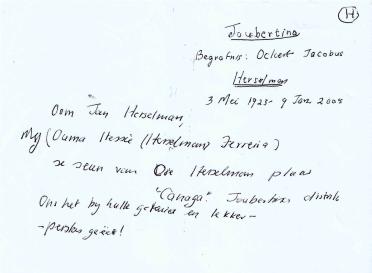 H
Joubertina
Begrafnis: Ockert Jacobus
Herselman
3 Mei 1923 - 9 Jan. 2005
Oom Jan Herselman,
My (Ouma Hessie (Herselman) Ferreira)
se seun van Herselman plaas
"Canaga". Joubertina distrik
Ons het by hulle gekuier en lekker -
- perskes geëet!